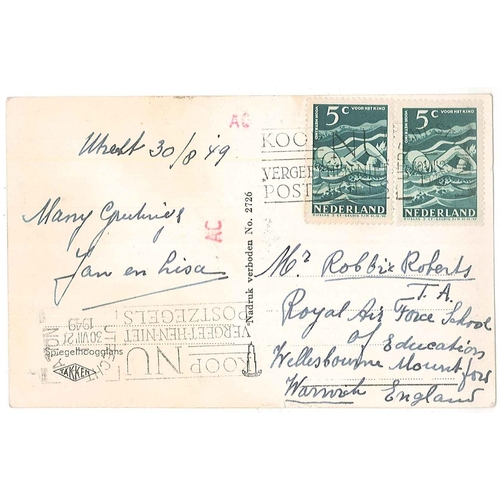 AC
5c VOOR HET KIND
NEDERLAND
5c VOOR HET KIND
NEDERLAND
KOOP
VERGEET
POST
Utrecht 30/8 '49
Many Greetings
Jan en Lisa
AC
Nadruk verboden No. 2726
Mr Robbie Roberts
T.A.
Royal Air Force School
of Education
Wellesbourne Mountford
Warwick England
KOOP NU
VERGEET HEN NIET
POSTZEGELS
UTRECHT
30.VIII 21
1949
Spiegelhoogglans
TAKKEN